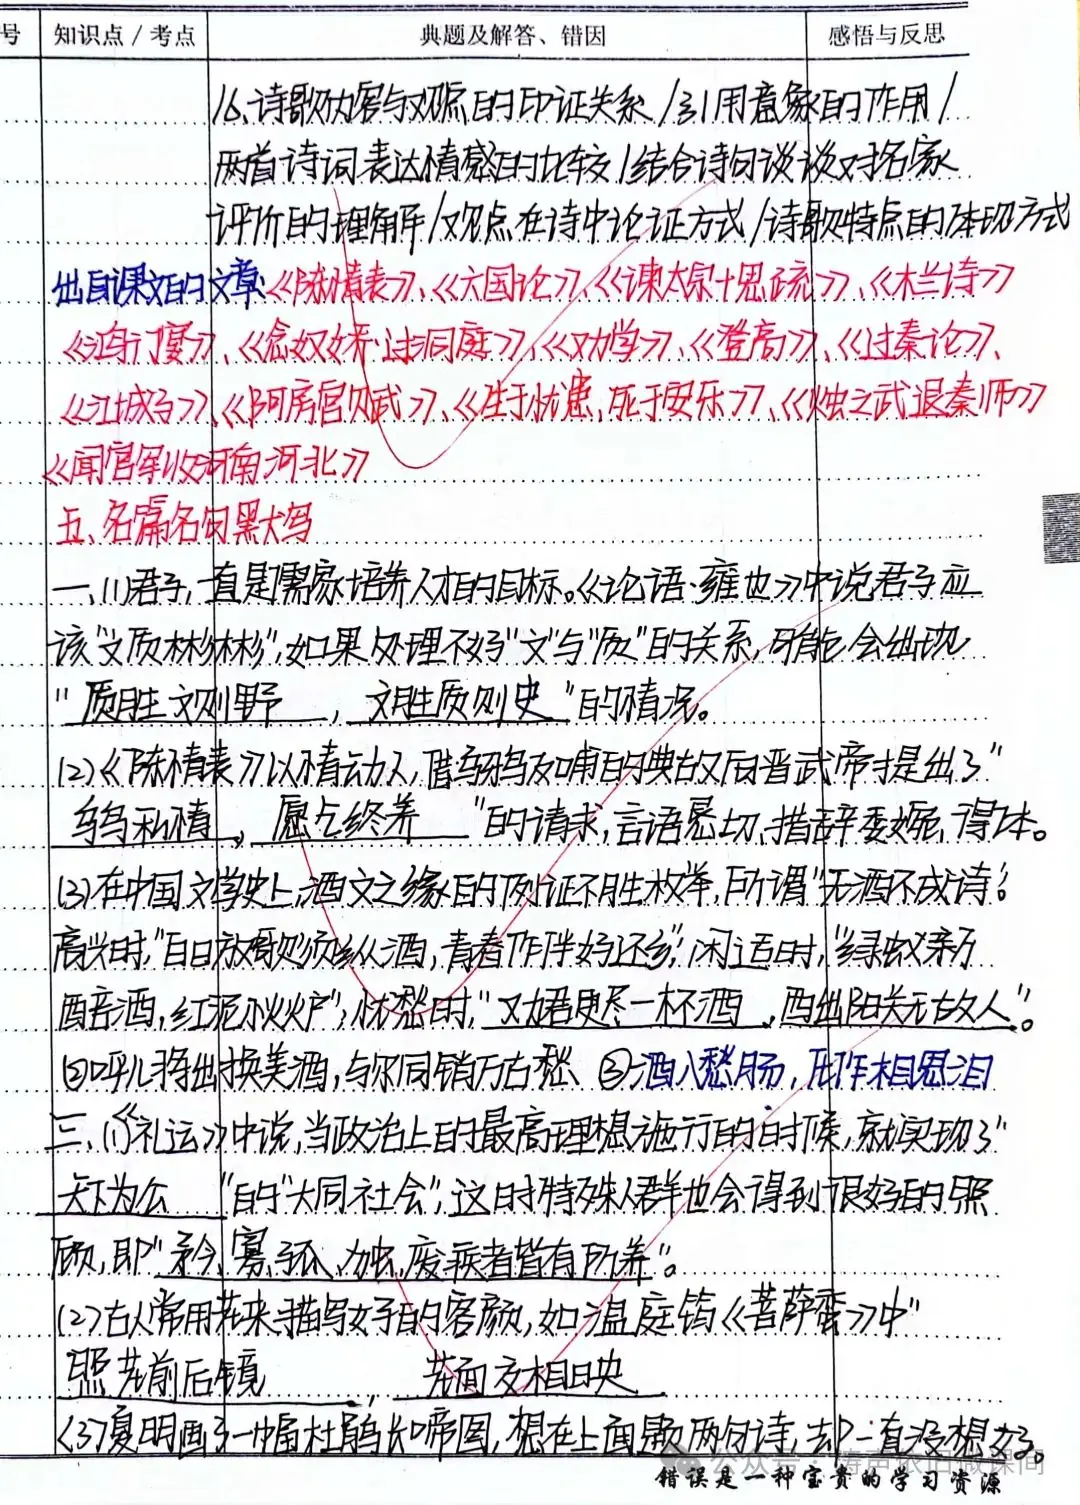 号 知识点 / 考点 典题及解答、错因 感悟与反思
16.诗歌内容与观点的印证关系/引用意象的作用/
两首诗词表达情感的比较/结合诗句谈谈对名家
评价的理解/观点在诗中论证方式/诗歌特点的体现方式
出自课文的文章:《陈情表》、《六国论》、《谏太宗十思疏》、《木兰诗》
《鸿门宴》、《念奴娇·过洞庭》、《劝学》、《登高》、《过秦论》、
《江城子》、《阿房宫赋》、《生于忧患,死于安乐》、《烛之武退秦师》
《闻官军收河南河北》
五、名篇名句默写
一、(1)君子,一直是儒家培养人才的目标。《论语·雍也》中说君子应
该"文质彬彬",如果处理不好"文"与"质"的关系,可能会出现
"质胜文则野,文胜质则史"的情况。
(2)《陈情表》以情动人,借乌鸦反哺的典故向晋武帝提出了"
乌鸟私情,愿乞终养"的请求,言语恳切,措辞委婉,得体。
(3)在中国文学史上,酒文之缘的例证不胜枚举,所谓"无酒不成诗":
高兴时,"白日放歌须纵酒,青春作伴好还乡";闲适时,"绿蚁新
醅酒,红泥小火炉";忧愁时,"劝君更尽一杯酒,西出阳关无故人"。
②呼儿将出换美酒,与尔同销万古愁 ③酒入愁肠,化作相思泪
三、(1)《礼运》中说,当政治上的最高理想施行的时候,就实现了"
天下为公"的"大同社会",这时特殊人群也会得到很好的照
顾,即"矜、寡、孤、独、废疾者皆有所养"。
(2)古人常用花来描写女子的容颜,如温庭筠《菩萨蛮》中"
照花前后镜,花面交相映
(3)夏明画了一幅杜鹃长啼图,想在上面题两句诗,却一直没想好。
公众号·涛声依旧微课间
错误是一种宝贵的学习资源